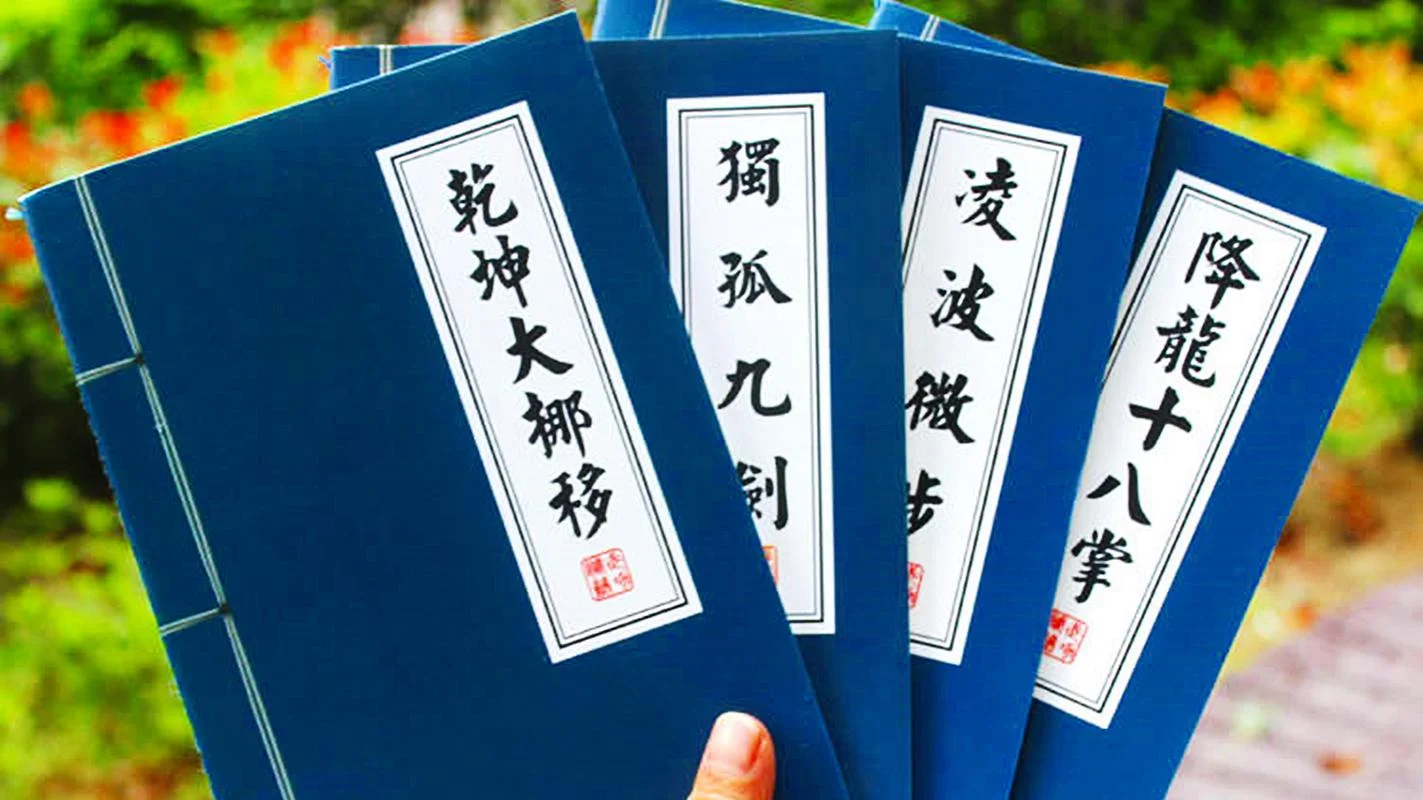 乾坤大挪移
獨孤九劍
凌波微步
降龍十八掌